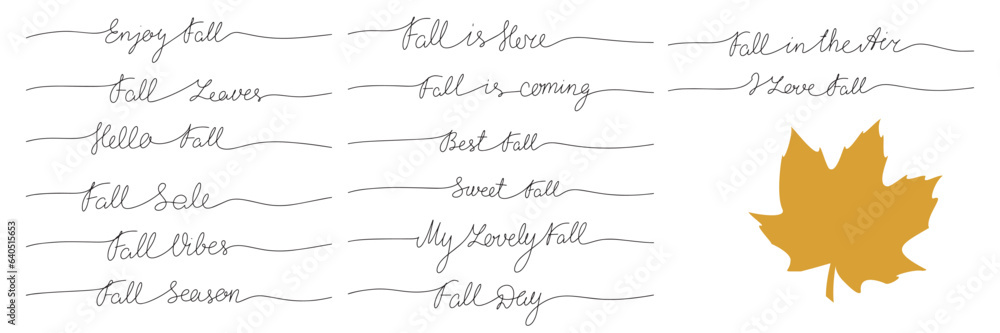 Enjoy Fall
Fall Leaves
Hello Fall
Fall Sale
Fall Vibes
Fall Season
Fall is Here
Fall is coming
Best Fall
Sweet Fall
My Lovely Fall
Fall Day
Fall in the Air
I Love Fall
Adobe Stock | #640515653